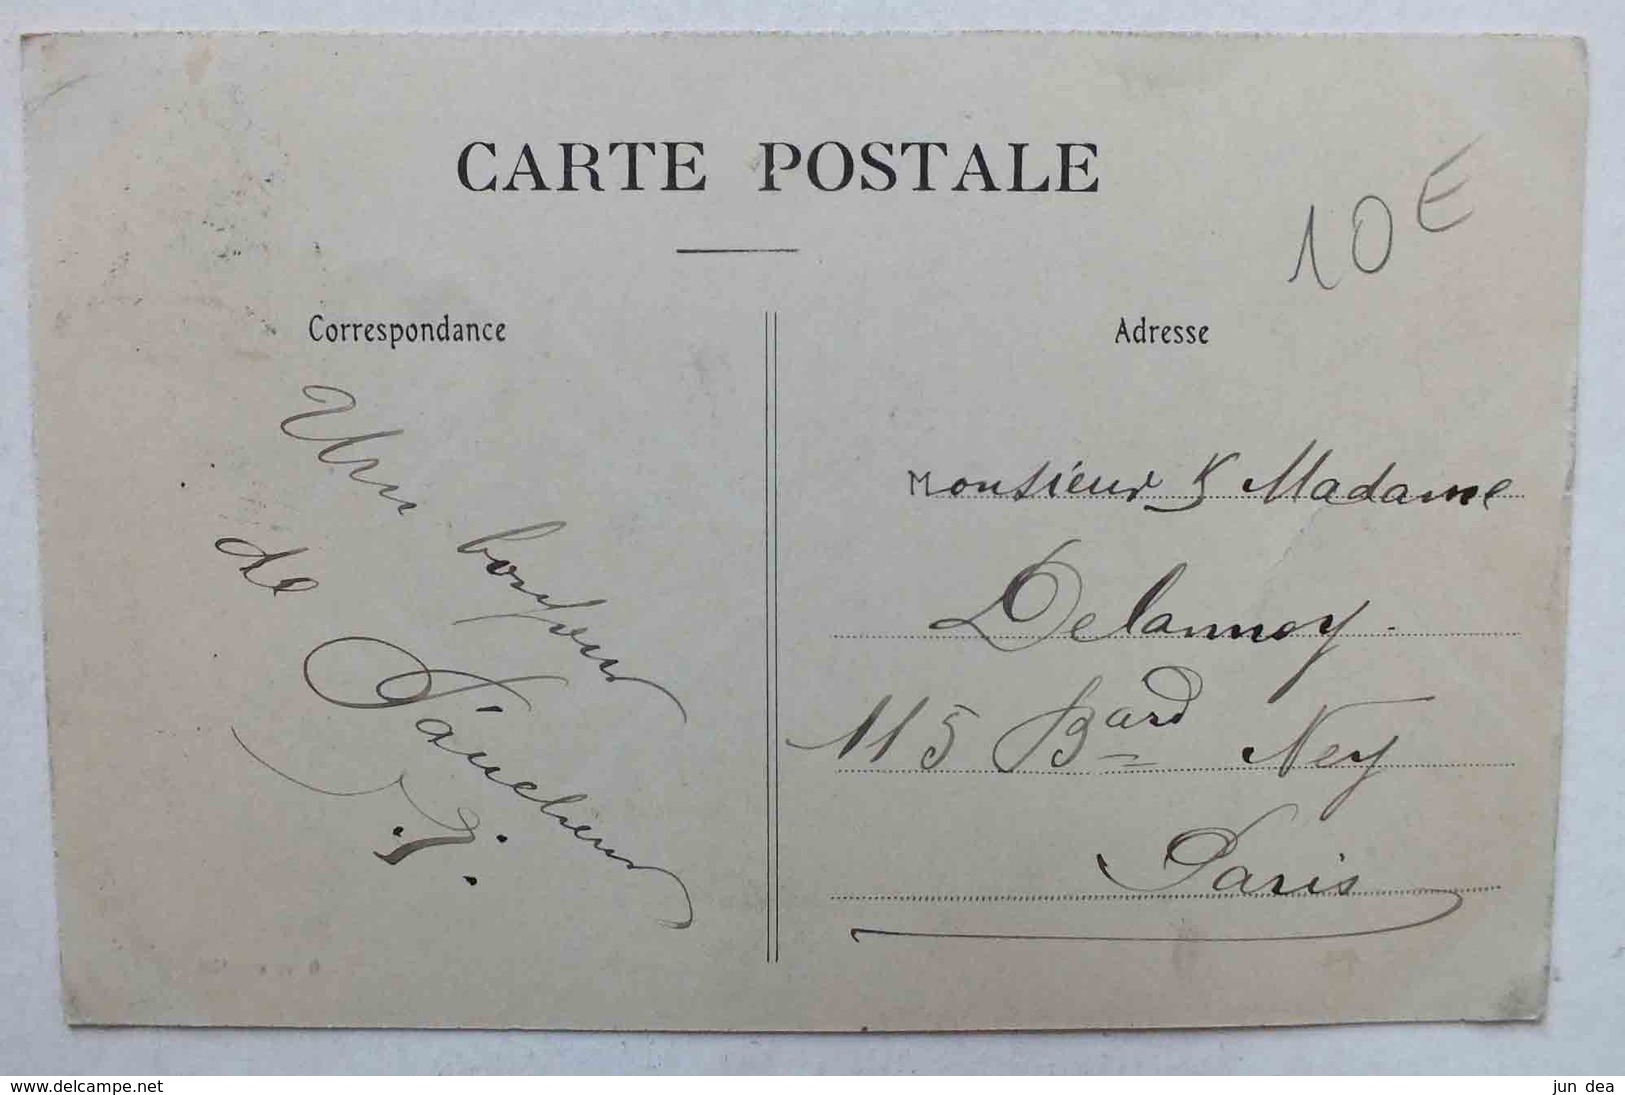 CARTE POSTALE
10E
Correspondance
Un bonjour
de
Adresse
Monsieur & Madame
Delannoy.
115 Bard Ney
Paris
www.delcampe.net
jun dea